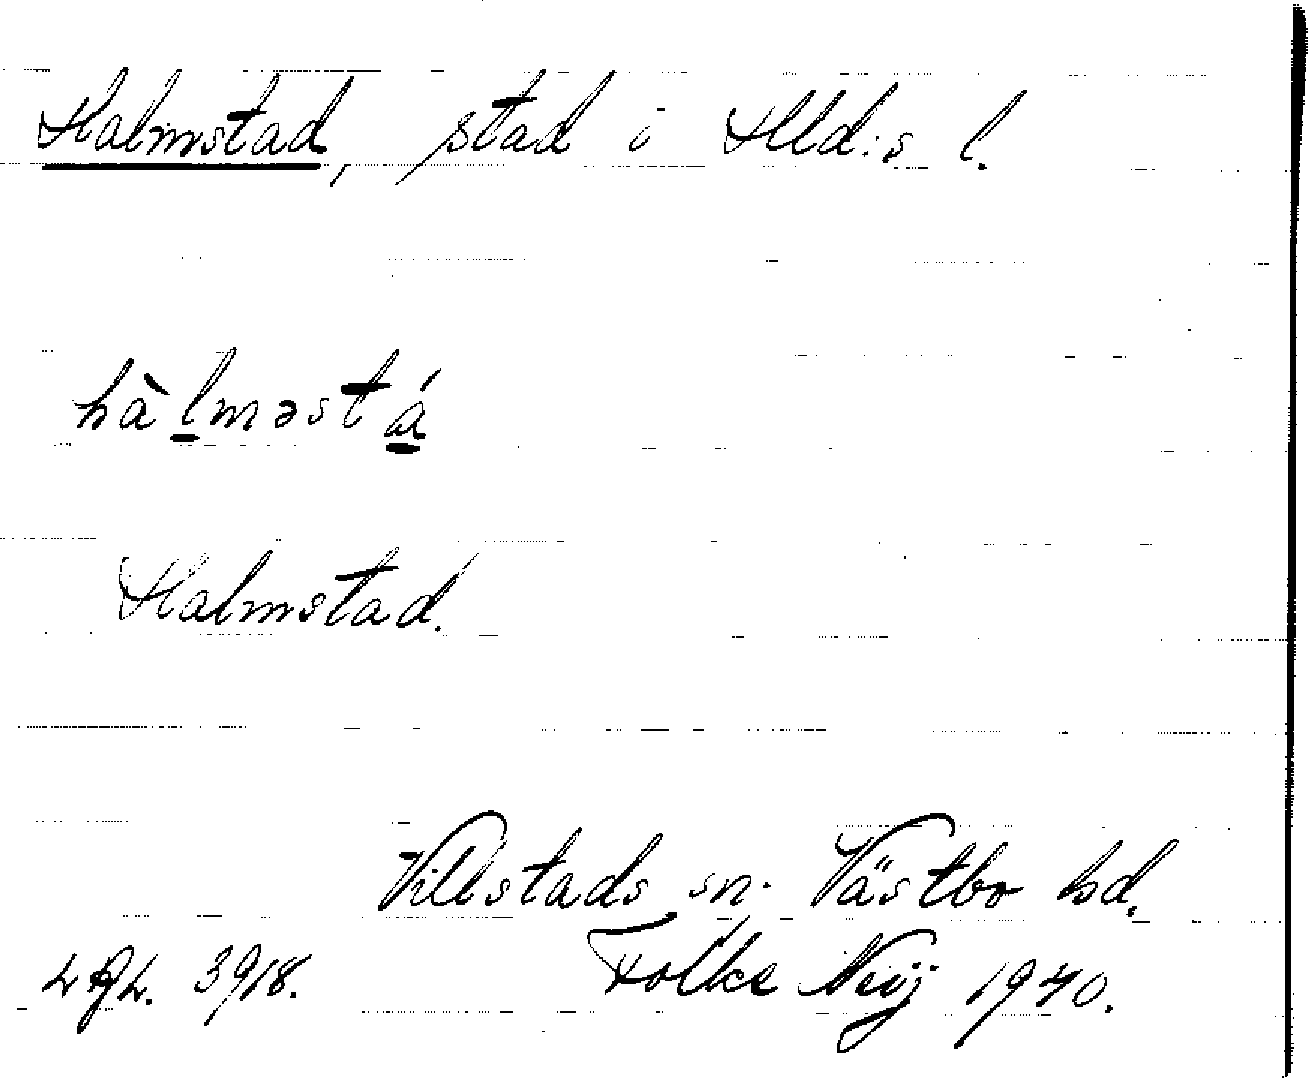 Halmstad, stad i Hld:s l.
hàlməstá
Halmstad.
Villstads sn. Västbo hd.
3918. Folke 1940.